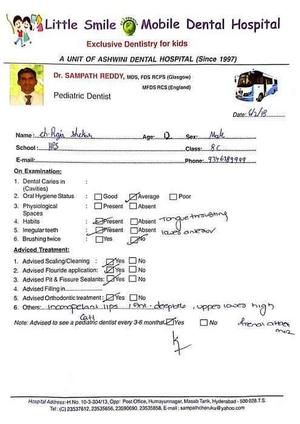 Little Smile Mobile Dental Hospital
Exclusive Dentistry for kids
A UNIT OF ASHWINI DENTAL HOSPITAL (Since 1997)
Dr. SAMPATH REDDY, MDS, FDS RCPS (Glasgow)
MFDS RCS (England)
Pediatric Dentist
Date:
Name: Age: Sex: Male
School: Class: 8C
E-mail: Phone:
On Examination:
1. Dental Caries in :
(Cavities)
2. Oral Hygiene Status : Good Average Poor
3. Physiological : Present Absent
Spaces
4. Habits : Present Absent Tongue thrusting
5. Irregular teeth : Present Absent lower anterior
6. Brushing twice : Yes No
Adviced Treatment:
1. Advised Scaling/Cleaning : Yes No
2. Advised Flouride application: Yes No
3. Advised Pit & Fissure Sealants: Yes No
4. Advised Filling in
5. Advised Orthodontic treatment : Yes No
6. Others: incompetent lips upper lower high
Note: Advised to see a pediatric dentist every 3-6 months Yes No
Hospital Address:-H No. 10-3-304/13, Opp: Post Office, Humayunnagar, Masab Tank, Hyderabad - 500 028 T.S.
Tel: (C) 23537612, 23535656, 23590690, 23535858, E-mail : sampathcheruku@yahoo.com